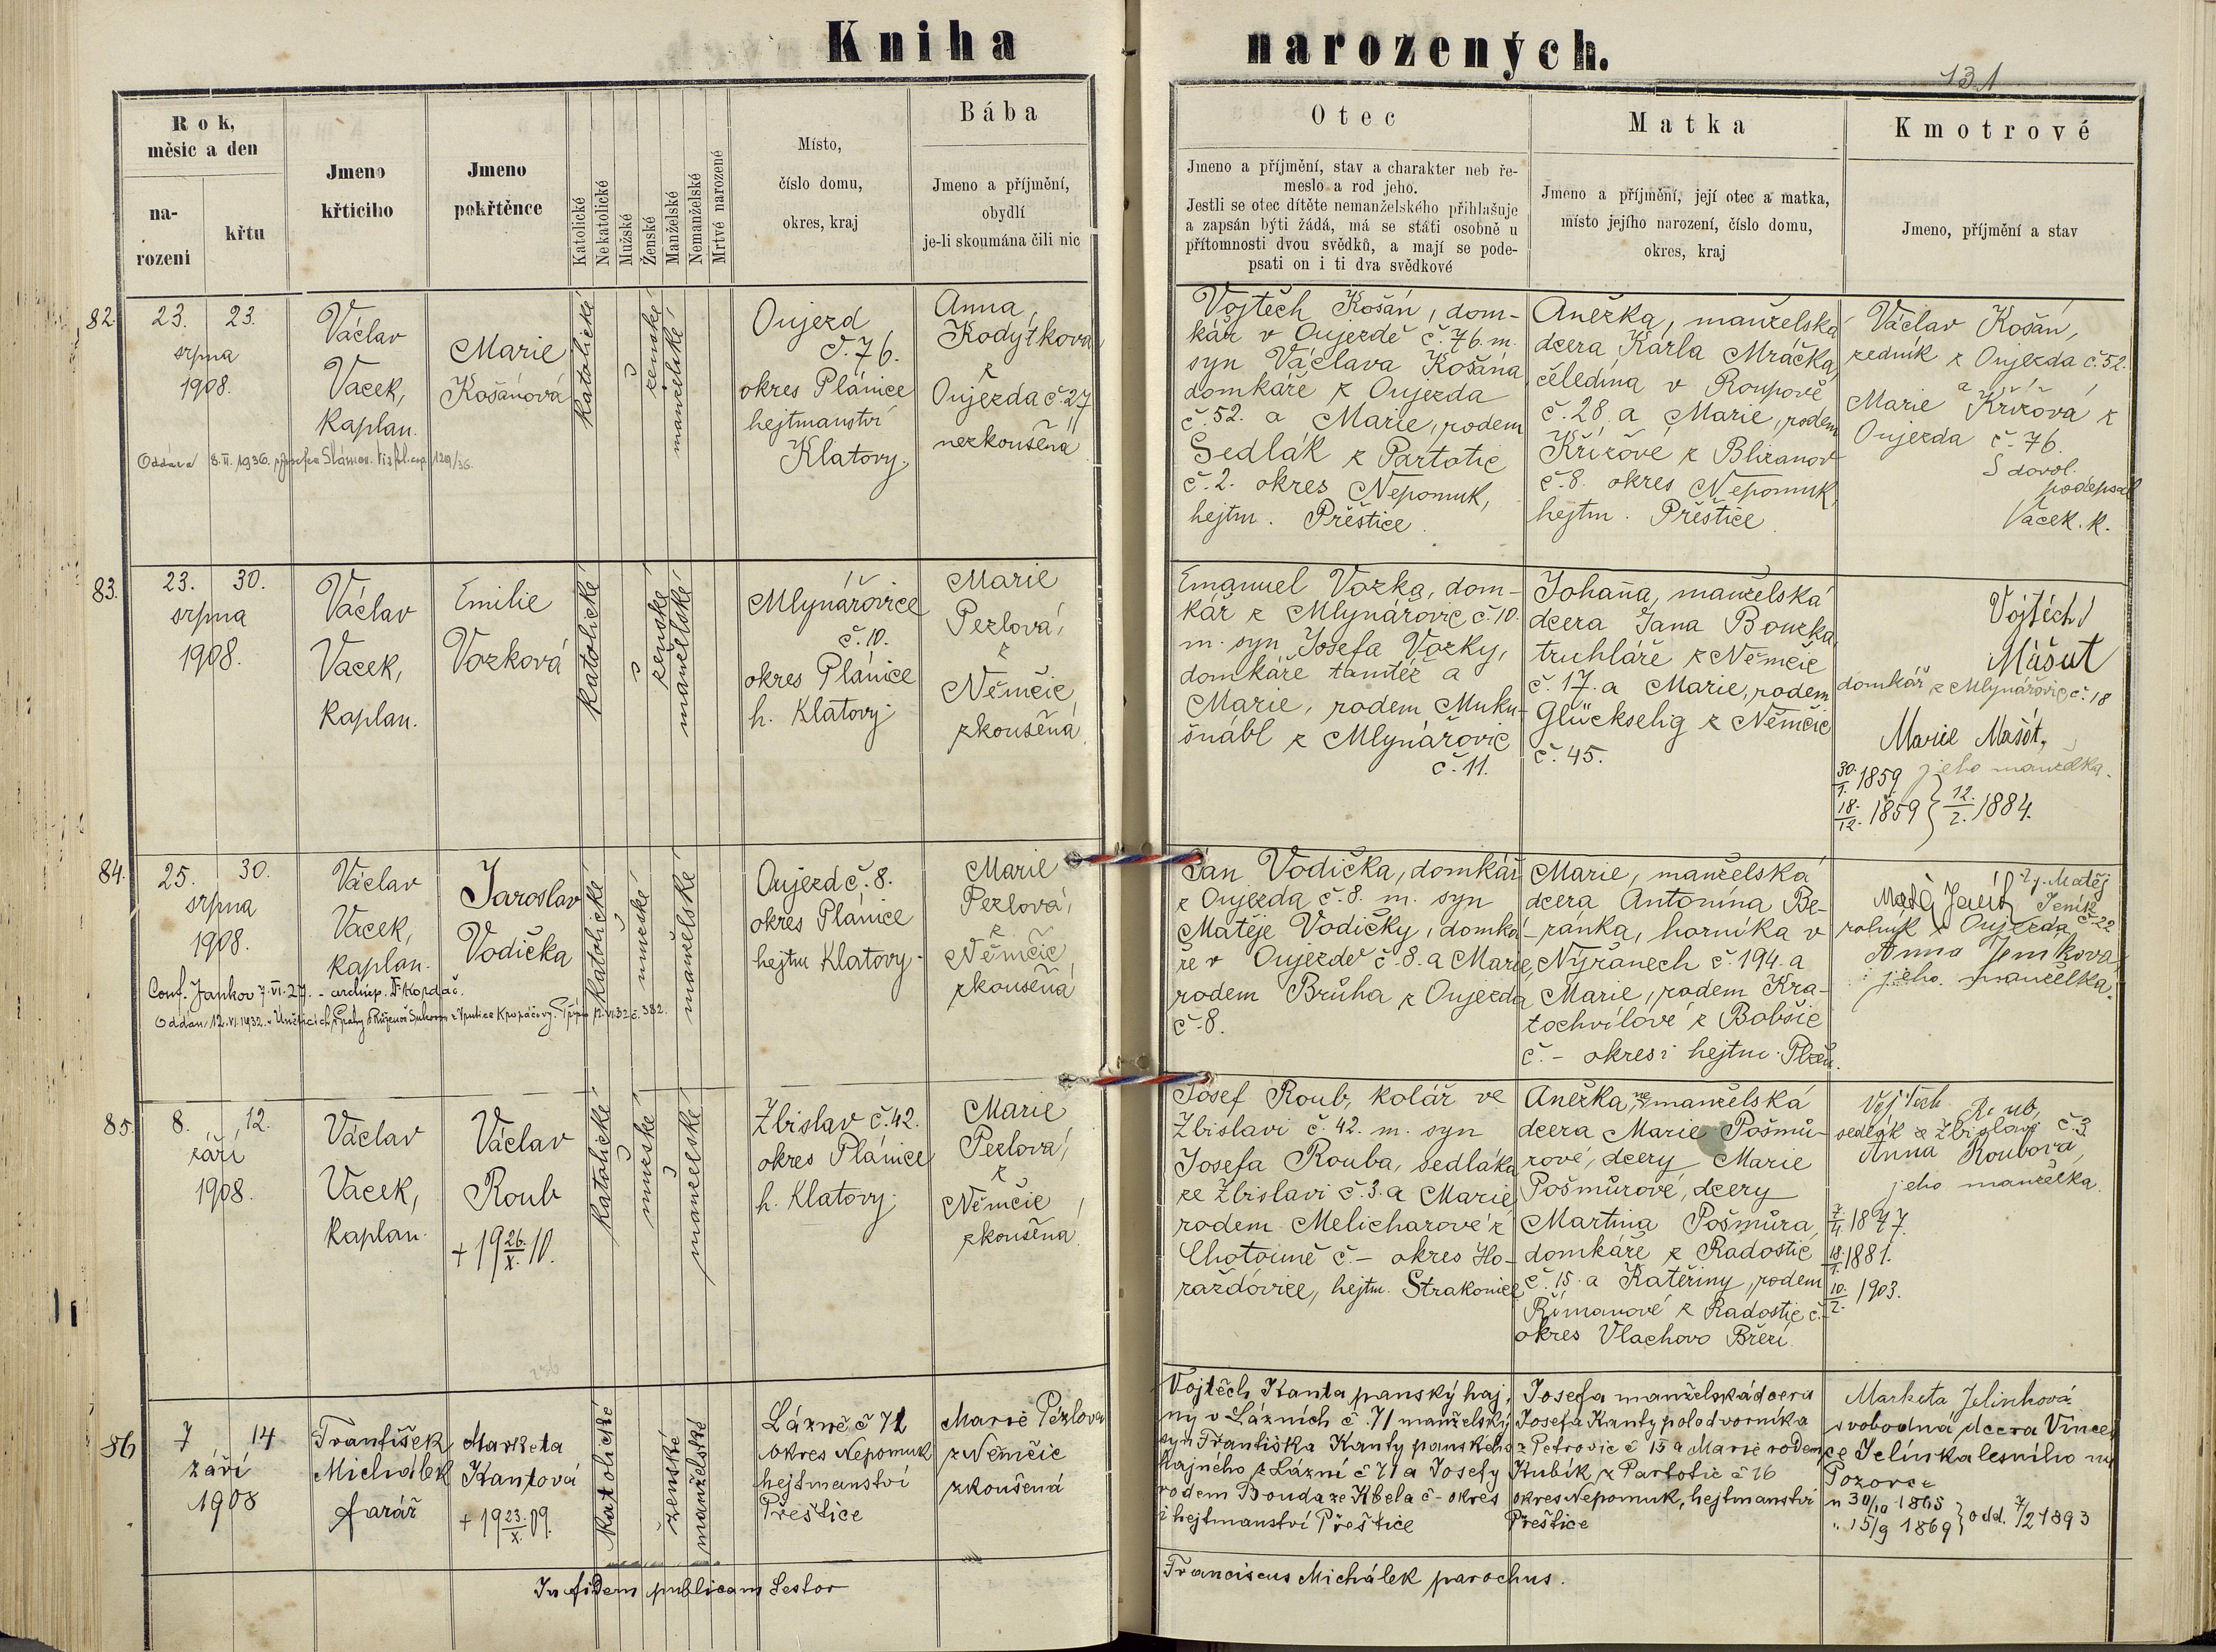 Kniha narozených.
131
Rok,
měsíc a den
na-
rozeni
křtu
Jmeno
křticiho
Jmeno
pokřtěnce
Katolické
Nekatolické
Mužské
Ženské
Manželské
Nemanželské
Mrtvé narozené
Místo,
číslo domu,
okres, kraj
Bába
Jmeno a příjmění,
obydlí
je-li skoumána čili nic
Otec
Jmeno a příjmění, stav a charakter neb ře-
meslo a rod jeho.
Jestli se otec dítěte nemanželského přihlašuje
a zapsán býti žádá, má se státi osobně u
přítomnosti dvou svědků, a mají se pode-
psati on i ti dva svědkové
Matka
Jmeno a příjmění, její otec a matka,
místo jejího narození, číslo domu,
okres, kraj
Kmotrové
Jmeno, příjmění a stav
82.
23. 23.
srpna
1908.
Václav
Vacek,
kaplan.
Marie
Košánová
katolické
ženské
manželské
Oujezd
č. 76.
okres Plánice
hejtmanství
Klatovy.
Anna
Kodýtková
z
Oujezda č. 27
nezkoušená
Vojtěch Košán, dom-
kář v Oujezdě č. 76. m.
syn Václava Košána
domkáře z Oujezda
č. 52. a Marie, rodem
Sedlák z Partotic
č. 2. okres Nepomuk,
hejtm. Přeštice
Anežka, manželská
dcera Karla Mráčka,
čeledína v Roupově
č. 28. a Marie, rodem
Křížové z Blizanov
č. 8. okres Nepomuk,
hejtm. Přeštice.
Václav Košan,
zedník z Oujezda č. 52.
a
Marie Křížová z
Oujezda č. 76.
S dovol.
podepsal
Vacek. k.
Oddána 8. II. 1936.
129/36.
83.
23. 30.
srpna
1908.
Václav
Vacek,
kaplan.
Emilie
Vozková
katolické
ženské
manželské
Mlynářovice
č. 10.
okres Plánice
h. Klatovy.
Marie
Pezlová,
z
Němčic
zkoušená
Emanuel Vozka, dom-
kář z Mlynářovic č. 10.
m. syn Josefa Vozky,
domkáře tamtéž a
Marie, rodem Muku-
šnábl z Mlynářovic
č. 11.
Johana, manželská
dcera Jana Bouzka,
truhláře z Němčic
č. 17. a Marie, rodem
Glückselig z Němčic
č. 45.
Vojtěch
Mašut
domkář z Mlynářovic č. 18
Marie Mašůt,
jeho manželka.
30./1. 1859
18./12. 1859 } 12./2. 1884.
84.
25. 30.
srpna
1908.
Václav
Vacek,
kaplan.
Jaroslav
Vodička
katolické
mužské
manželské
Oujezd č. 8.
okres Plánice
hejtm Klatovy.
Marie
Pezlová,
z
Němčic
zkoušená
Jan Vodička, domkář
z Oujezda č. 8. m. syn
Matěje Vodičky, domká-
ře v Oujezdě č. 8. a Marie,
rodem Brůha z Oujezda
č. 8.
Marie, manželská
dcera Antonína Be-
ránka, horníka v
Nýřanech č. 194. a
Marie, rodem Kra-
tochvílové z Bobšic
č. – okres i hejtm. Plzeň.
Matěj Jeník
t. j. Matěj
Jeník
rolník z Oujezda č 22
Anna Jenikova
jeho manželka.
Conf. Jankov 7. VI. 27. – archiep. Fr Kordač.
Oddán 12. VI. 1932.
85.
8. 12.
září
1908.
Václav
Vacek,
kaplan.
Václav
Roub
+ 19 26./X. 10.
katolické
mužské
manželské
Zbislav č. 42.
okres Plánice
h. Klatovy.
Marie
Pezlová,
z
Němčic
zkoušená
Josef Roub, kolář ve
Zbislavi č. 42. m. syn
Josefa Rouba, sedláka
ze Zbislavi č. 3. a Marie
rodem Melicharové z
č. – okres Ho-
ražďovice, hejtm. Strakonice
Anežka, nemanželská
dcera Marie Pošmů-
rové, dcery Marie
Pošmůrové, dcery
Martina Pošmůra,
domkáře z Radostic
č. 15. a Kateřiny, rodem
Římanové z Radostic č. –
okres Vlachovo Březí.
Vojtěch Roub,
sedlák z Zbislavi č. 3
Anna Roubova,
jeho manželka.
7/4 1847.
18./1. 1881.
10./2. 1903.
86
7 14
září
1908
František
Michálek
farář
Marketa
Kantová
+ 19 23./X. 09.
katolické
ženské
manželské
Lázně č 71
okres Nepomuk
hejtmanství
Přeštice
Marie Pezlova
z Němčic
zkoušená
Vojtěch Kanta panský haj-
ný v Lázních č. 71 manželský
syn Františka Kanty panského
hajného z Lázní č 71 a Josefy
rodem Bouda ze Kbela č – okres
i hejtmanství Přeštice
Josefa manželská dcera
Josefa Kanty polodvorníka
z Petrovic č 15 a Marie rodem
Kubík z Partotic č 16
okres Nepomuk, hejtmanství
Přeštice
Marketa Jelinková
svobodná dcera Vince-
ce Jelínka lesního na
Pozorce
n 30/10 1865
" 15/9 1869 } odd. 7/2 1893
In fidem publicam testor
Franciscus Michálek parochus.